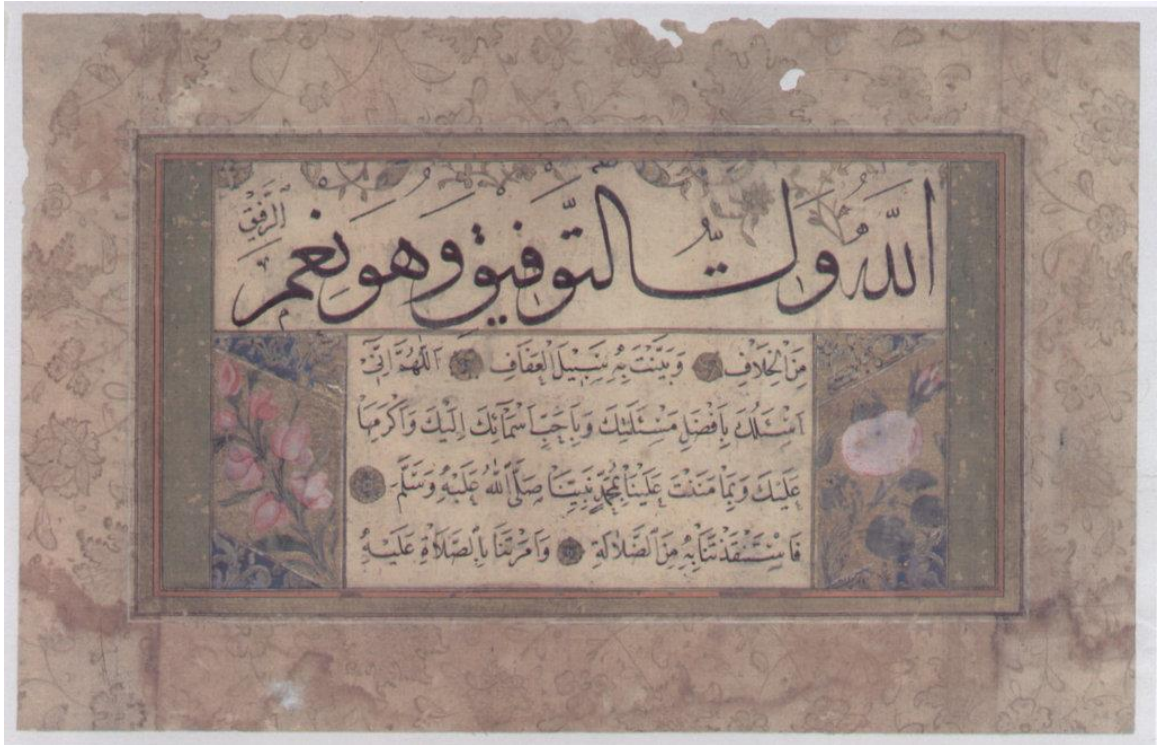 اللّٰهُ وَلِيُّ التَّوْفِيقِ وَهُوَ نِعْمَ الرَّفِيقُ
مِنَ الْخِلَافِ وَبَيَّنْتَ بِهِ سَبِيلَ الْعَفَافِ اَللّٰهُمَّ اِنِّي
اَسْئَلُكَ بِاَفْضَلِ مَسْئَلَتِكَ وَبِاَحَبِّ اَسْمَآئِكَ اِلَيْكَ وَاَكْرَمِهَا
عَلَيْكَ وَبِمَا مَنَنْتَ عَلَيْنَا بِمُحَمَّدٍ نَبِيِّنَا صَلَّى اللّٰهُ عَلَيْهِ وَسَلَّمَ
فَاسْتَنْقَذْتَنَا بِهِ مِنَ الضَّلَالَةِ وَاَمَرْتَنَا بِالصَّلَاةِ عَلَيْهِ